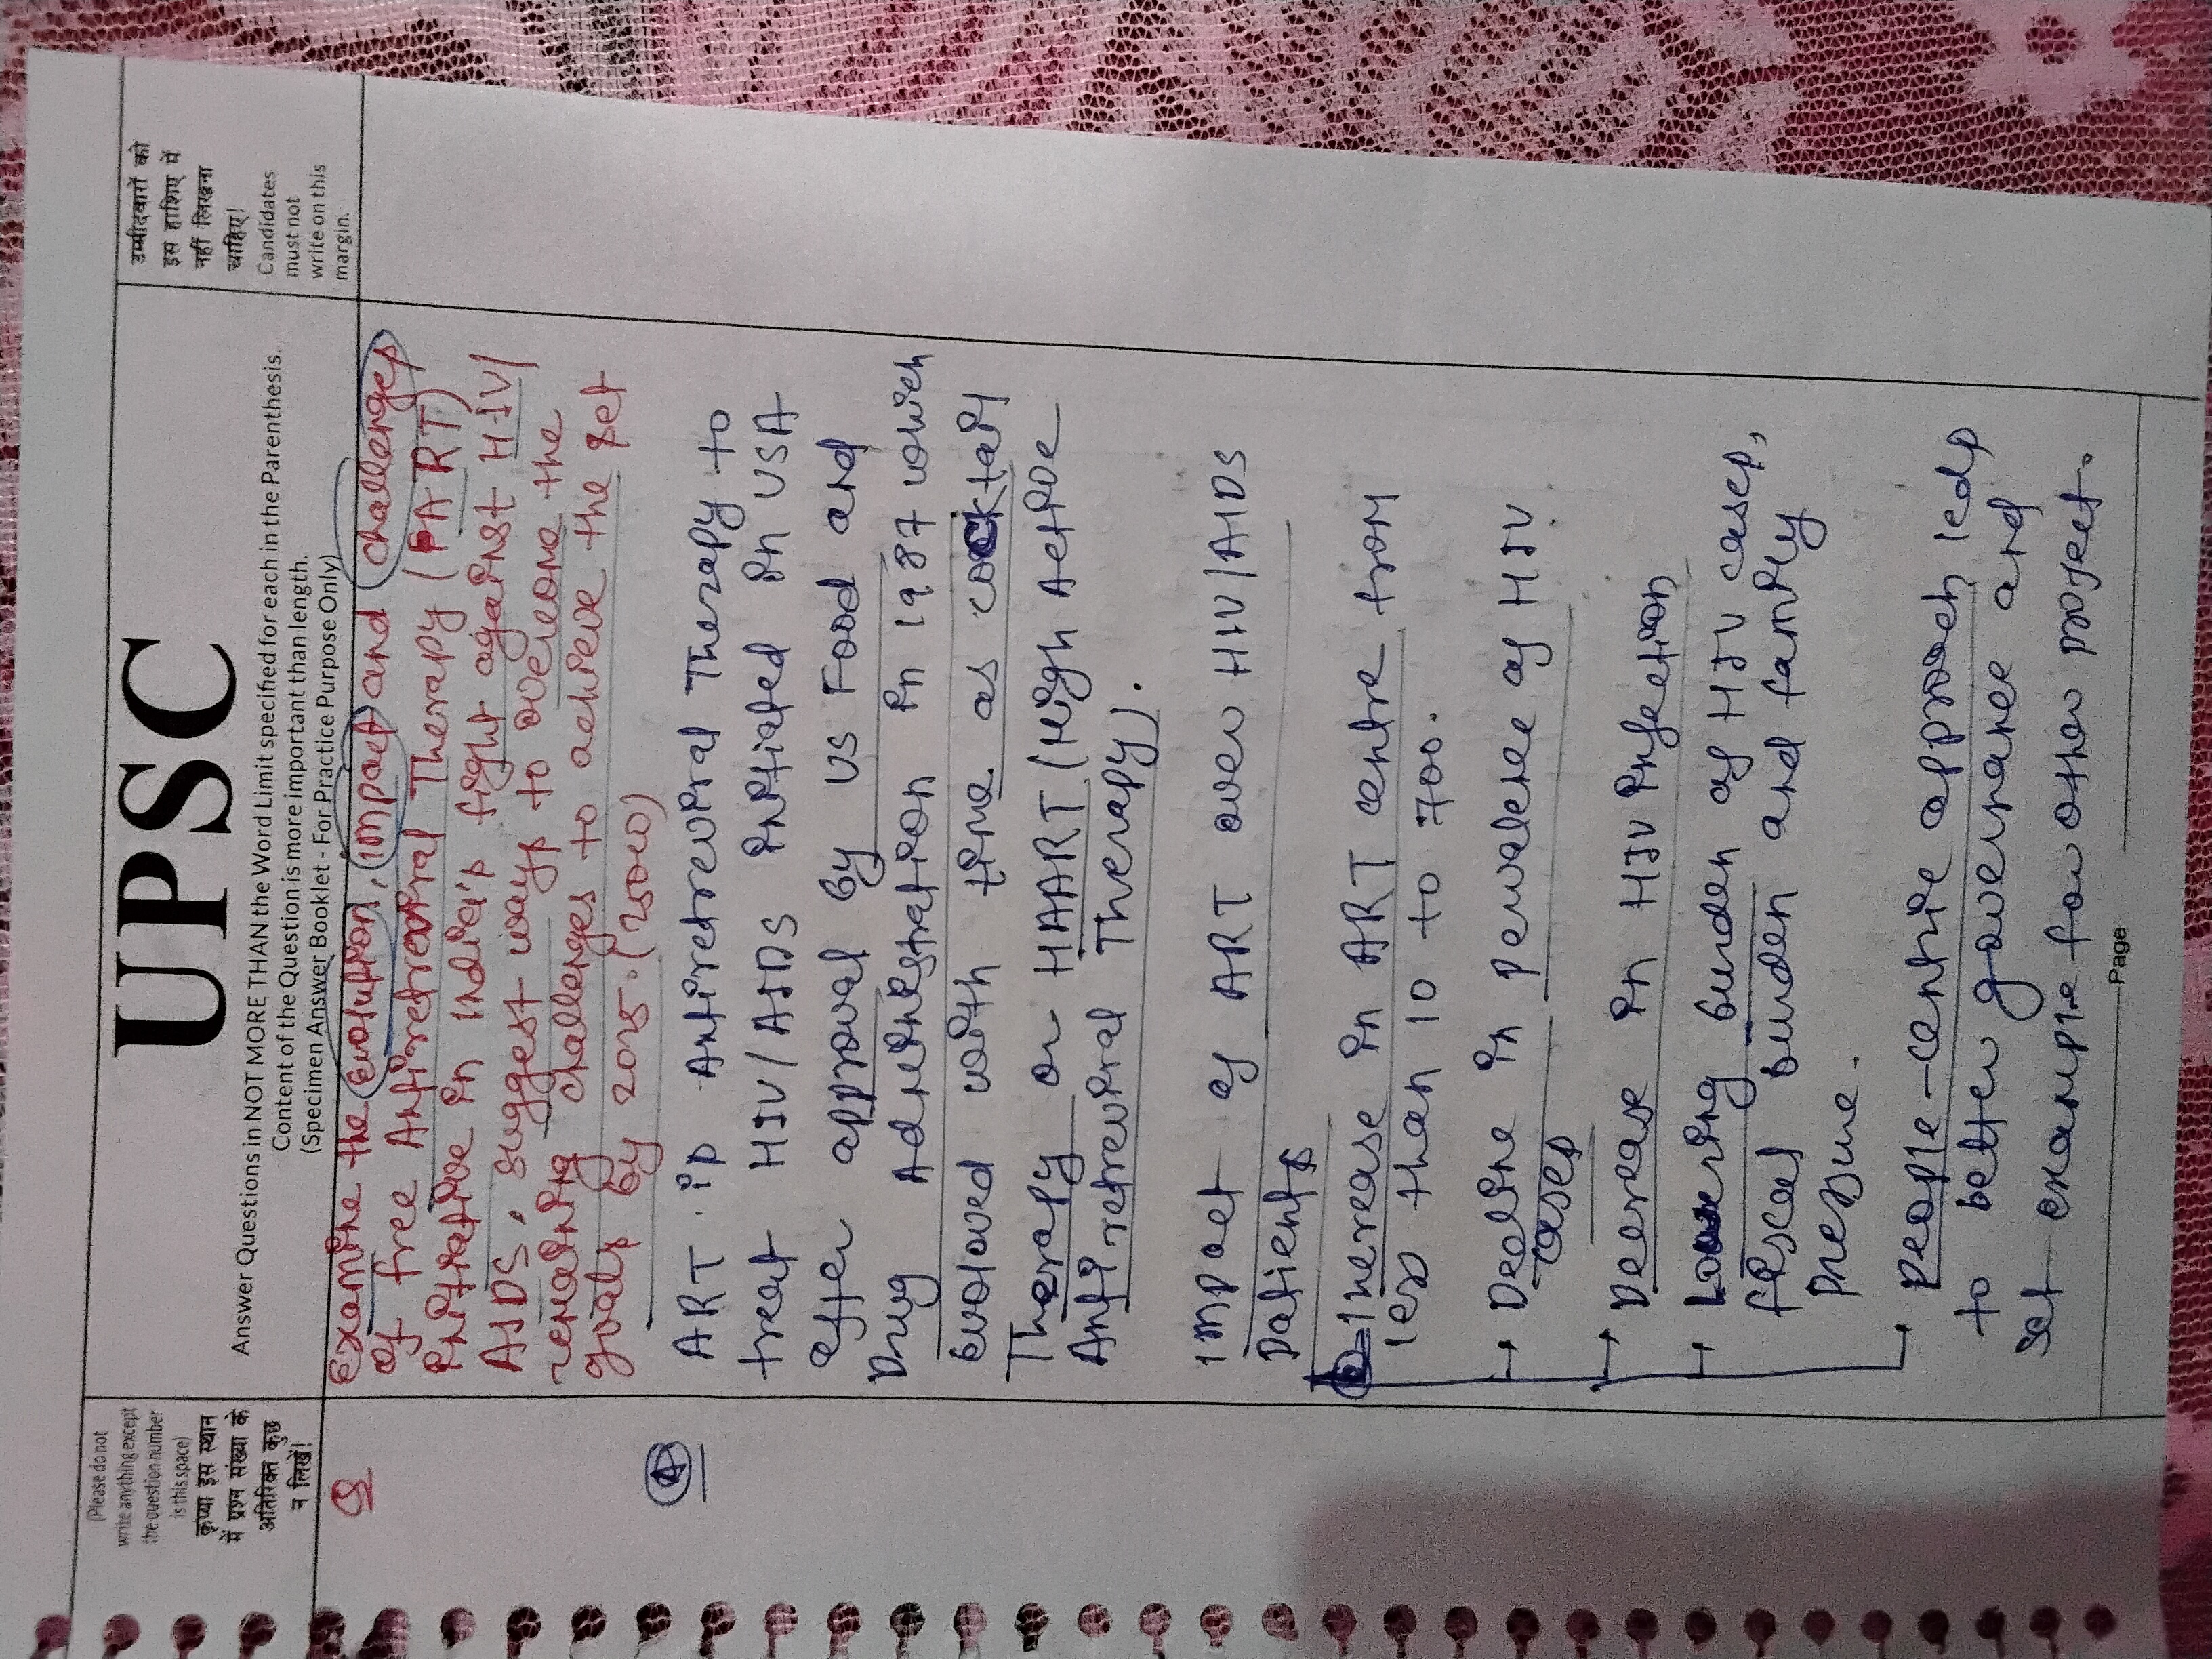 (Please do not
write anything except
the question number
is this space)
कृप्या इस स्थान
में प्रश्न संख्या के
अतिरिक्त कुछ
न लिखें!
UPSC
Answer Questions in NOT MORE THAN the Word Limit specified for each in the Parenthesis.
Content of the Question is more important than length.
(Specimen Answer Booklet - For Practice Purpose Only)
उम्मीदवारों को
इस हाशिए में
नहीं लिखना
चाहिए!
Candidates
must not
write on this
margin.
Q
Examine the evolution, impact and challenges
of free Antiretroviral Therapy (ART)
initiative in India's fight against HIV/
AIDS. suggest ways to overcome the
remaining challenges to achieve the set
goals by 2025. (250w)
A
ART is Antiretroviral Therapy to
treat HIV/AIDS initiated in USA
after approval by US Food and
Drug Administration in 1987 which
evolved with time as cocktail
Therapy or HAART (High Active
Antiretroviral Therapy).
Impact of ART over HIV/AIDS
Patients
Increase in ART centre from
less than 10 to 700.
Decline in pervalence of HIV
cases
Decrease in HIV infection
Lowering burden of HIV cases,
fiscal burden and family
pressure.
People-centric approach leds
to better governance and
set example for other project.
Page